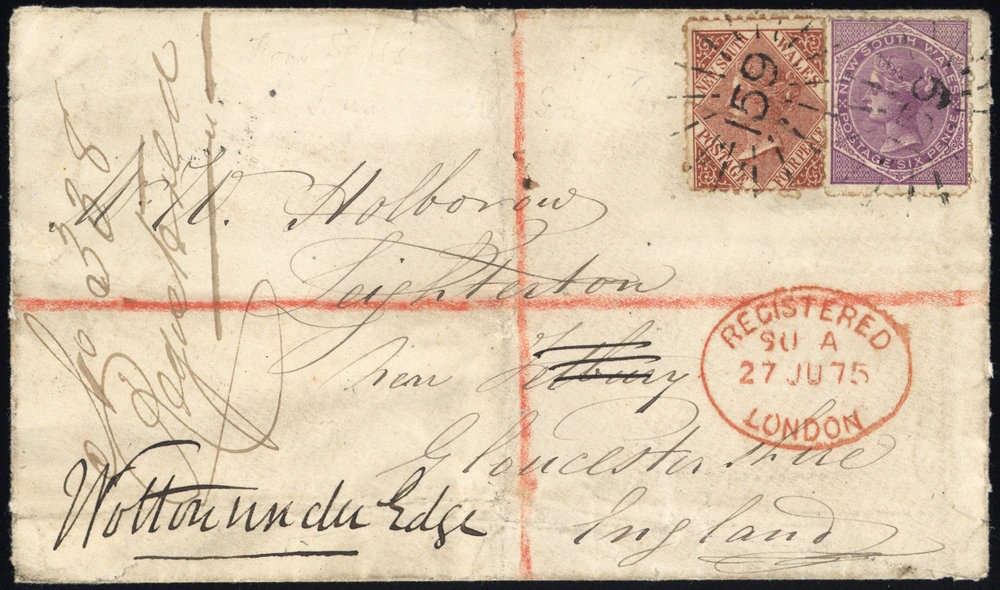 NEW SOUTH WALES
POSTAGE FOURPENCE
159
NEW SOUTH WALES
POSTAGE SIX PENCE
W. W. Holborow
Leighterton
near Tetbury
Gloucestershire
England
Wotton under Edge
REGISTERED
27 JU 75
LONDON